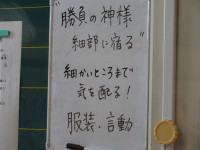 "勝負の神様
細部に宿る"
細かいところまで
気を配る！
服装・言動